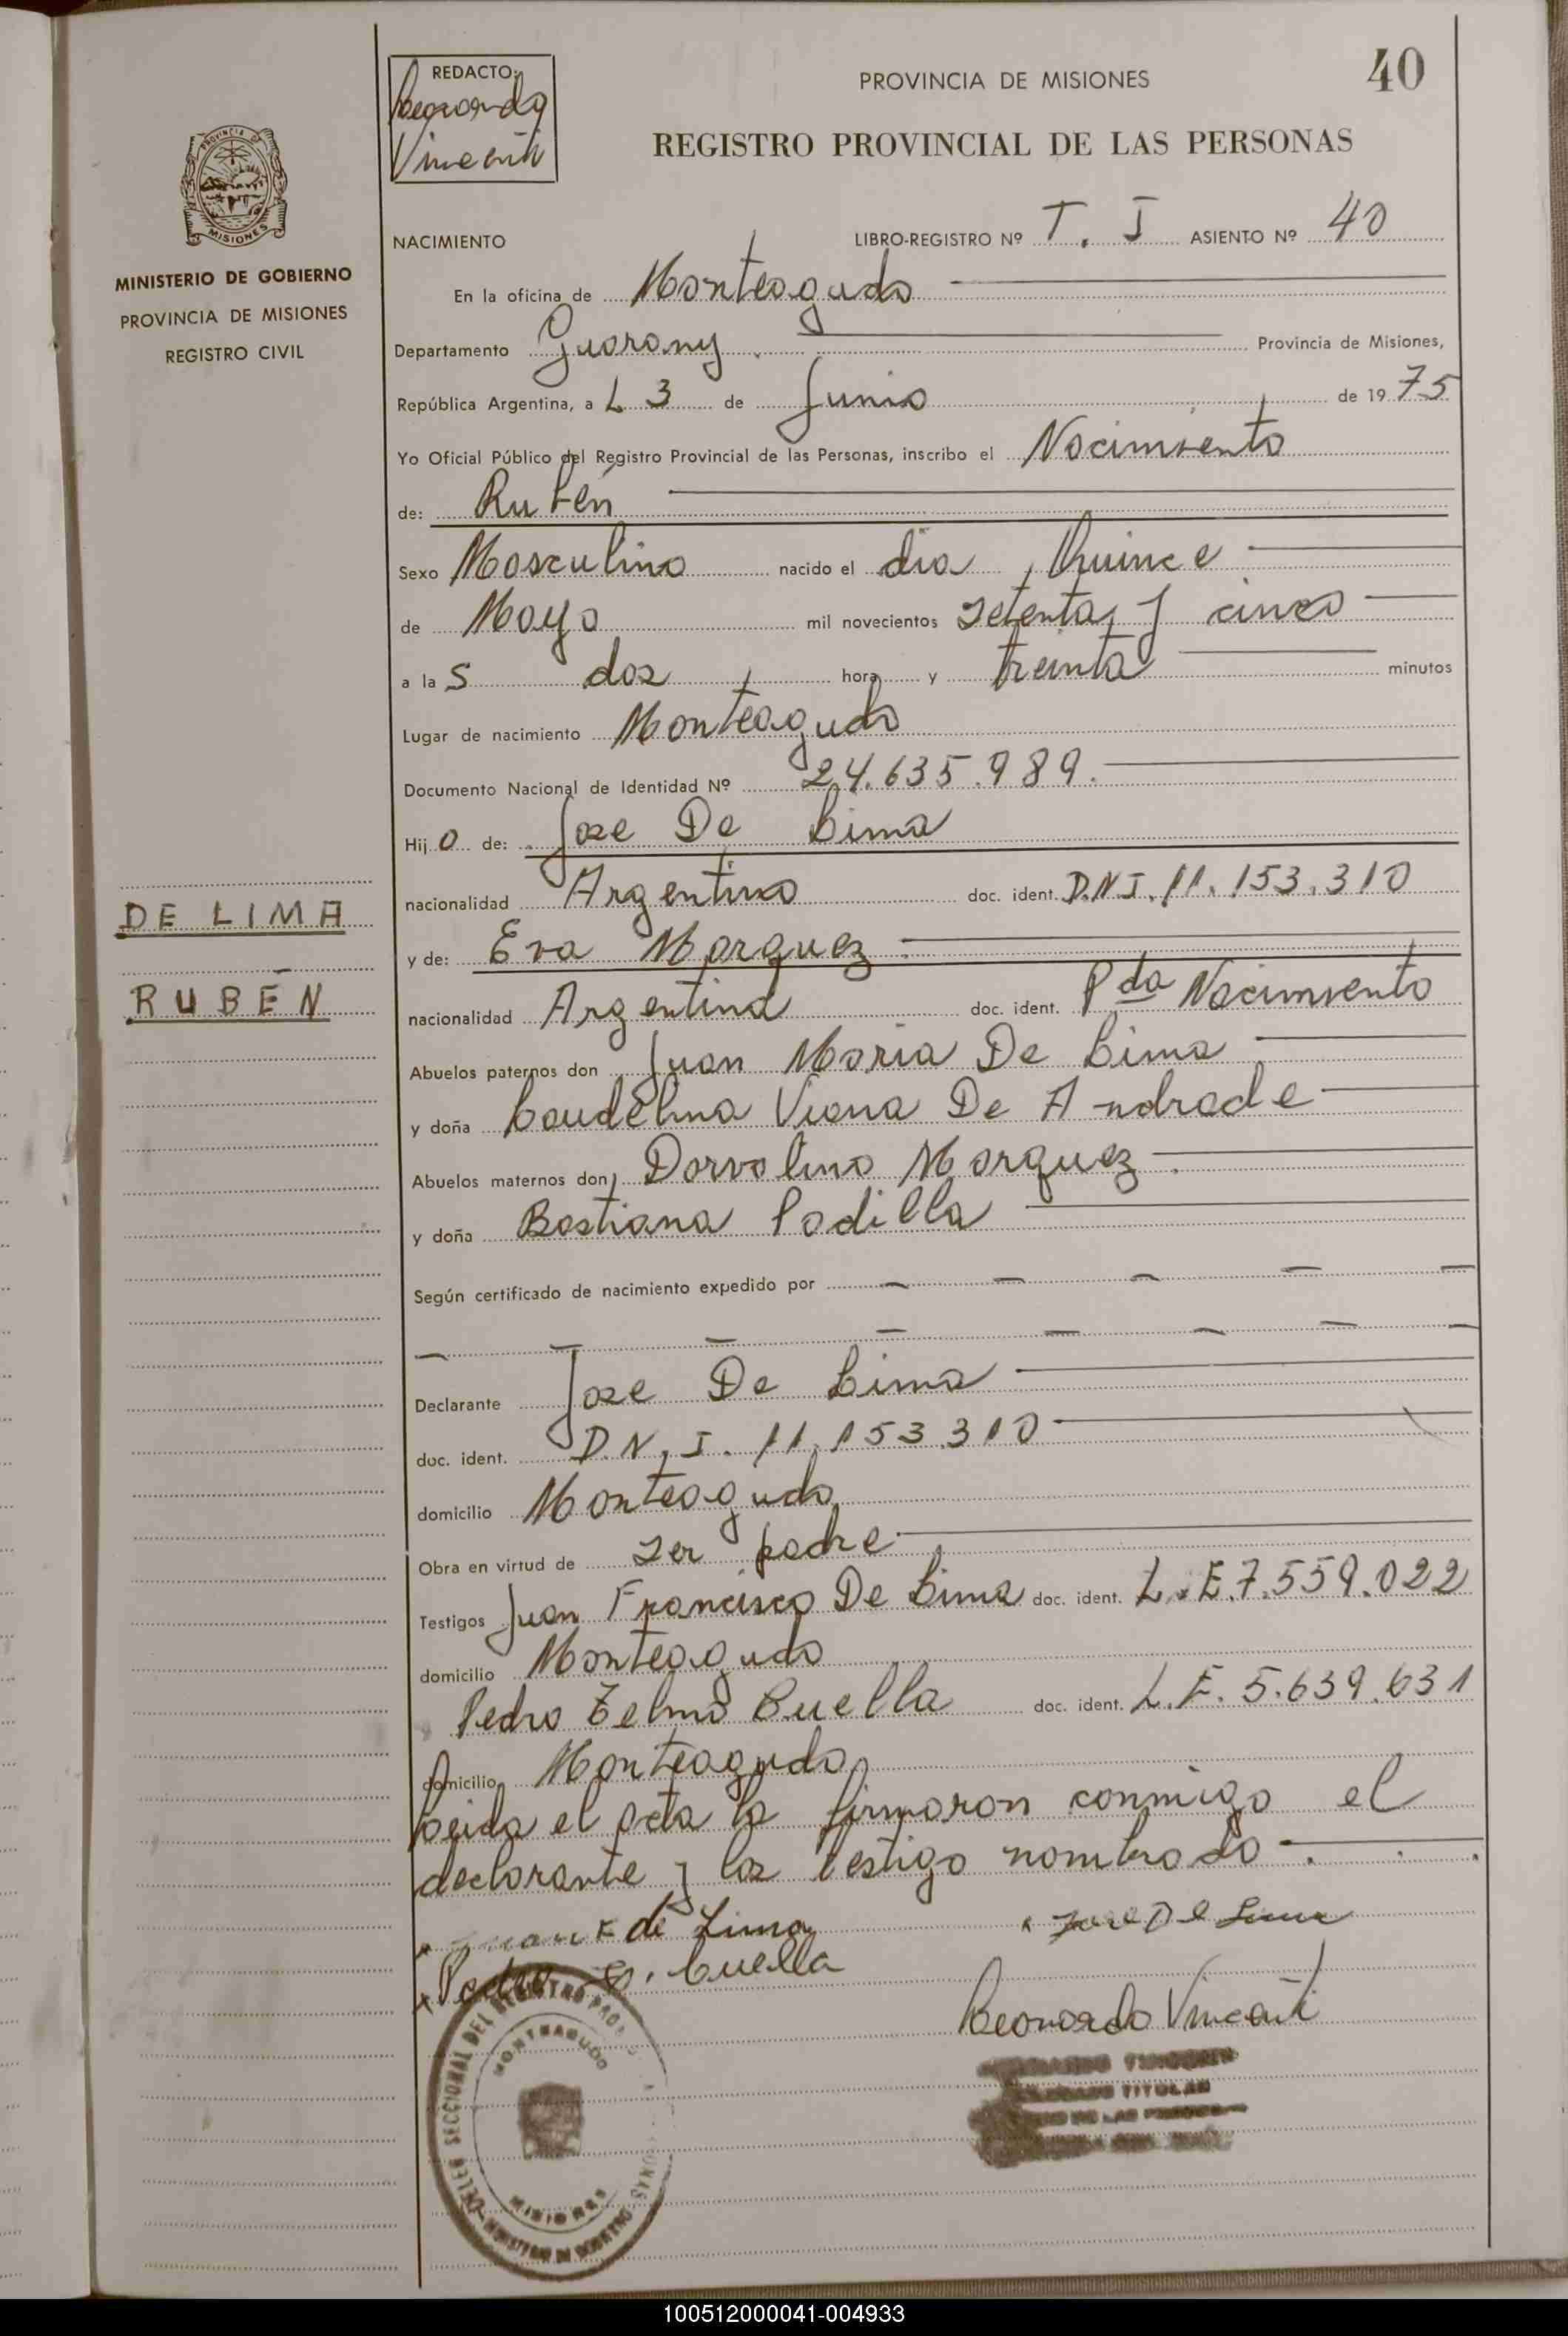 REDACTO:
Leonardo
Vincenti
PROVINCIA DE MISIONES
40
REGISTRO PROVINCIAL DE LAS PERSONAS
PROVINCIA DE
MISIONES
MINISTERIO DE GOBIERNO
PROVINCIA DE MISIONES
REGISTRO CIVIL
NACIMIENTO
LIBRO-REGISTRO Nº T. I ASIENTO Nº 40
En la oficina de Monteagudo
Departamento Guarany. Provincia de Misiones,
República Argentina, a 3 de Junio de 1975
Yo Oficial Público del Registro Provincial de las Personas, inscribo el Nacimiento
de: Rubén
Sexo Masculino nacido el dia Quince
de Mayo mil novecientos Setenta y cinco
a las dos hora y treinta minutos
Lugar de nacimiento Monteagudo
Documento Nacional de Identidad Nº 24.635.989.
Hijo de: Jose De Lima
nacionalidad Argentino doc. ident. D.N.I. 11.153.310
DE LIMA
y de: Eva Marquez
RUBÉN
nacionalidad Argentina doc. ident. Pda Nacimiento
Abuelos paternos don Juan Maria De Lima
y doña Laudelina Viana De Andrade
Abuelos maternos don Dorvalino Marquez.
y doña Bastiana Padilla
Según certificado de nacimiento expedido por
Declarante Jose De Lima
doc. ident. D.N.I. 11.153.310
domicilio Monteagudo
Obra en virtud de ser padre
Testigos Juan Francisco De Lima doc. ident. L.E. 7.559.022
domicilio Monteagudo
Pedro Telmo Cuella doc. ident. L.E. 5.639.631
domicilio Monteagudo
Leida el acta la firmaron conmigo el
declarante y los testigo nombrado.
Juan F de Lima
Jose De Lima
Pedro T. Cuella
Leonardo Vincenti
DELEG. SECCIONAL DEL REGISTRO PROV
MONTEAGUDO
MISIONES
MINISTERIO DE GOBIERNO
TITULAR
100512000041-004933